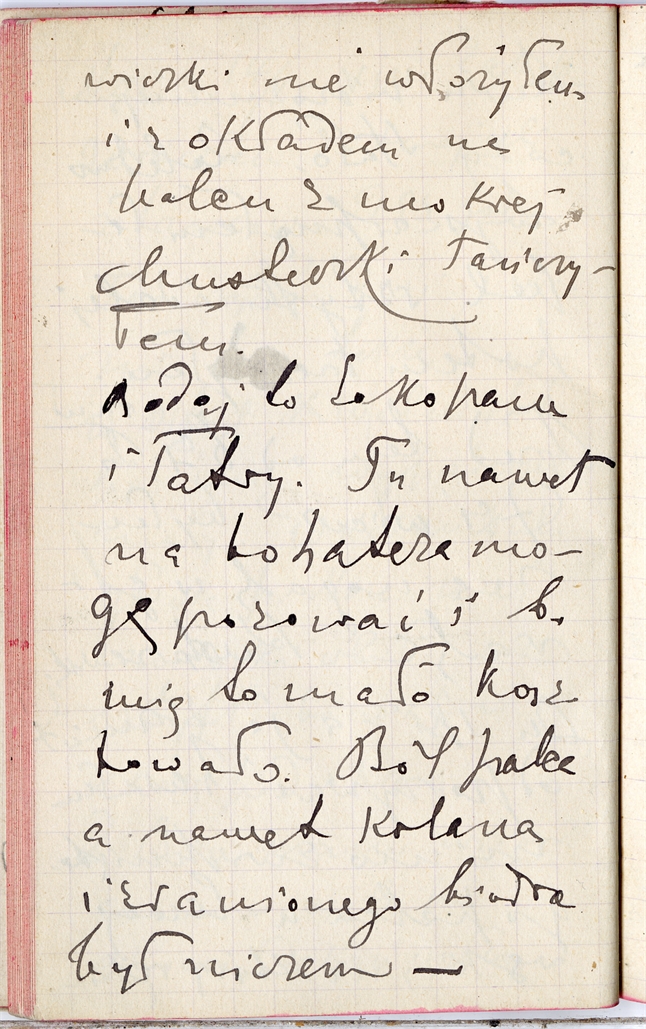 nie włożyłem
i z okładem na
palcu z mokrej
chusteczki tańczy-
łem.
to Zakopane
i Tatry. Tu nawet
na bohatera mo-
gę pozować i b.
mię to mało kosz
towało. Ból palca
a nawet kolana
i zranionego biodra
był niczem —